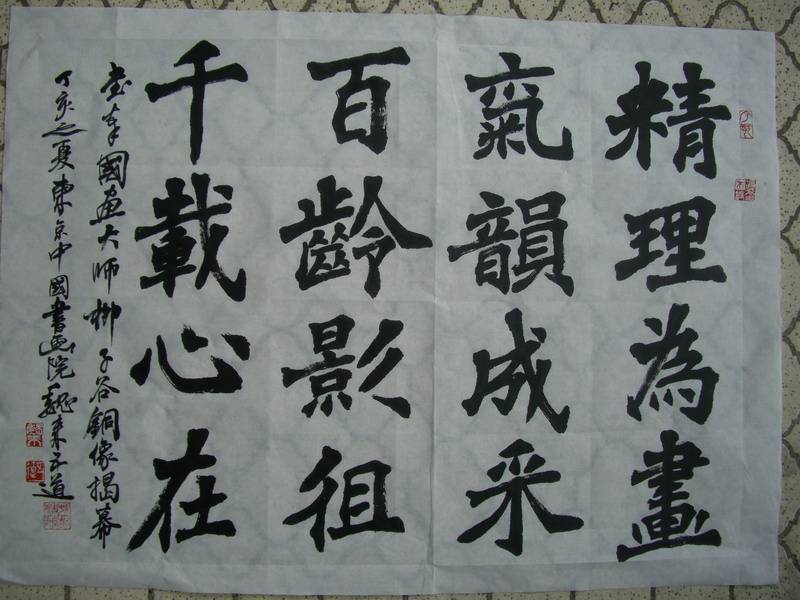 精理為畫
氣韻成采
百齡影徂
千載心在
國画大師柳子谷銅像揭幕
丁亥之夏東京中國書画院魏来五道